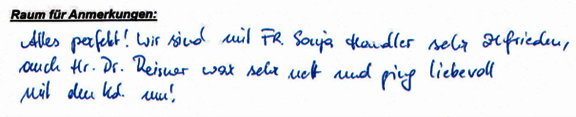 Raum für Anmerkungen:
Alles perfekt! Wir sind mit FR. Sonja Handler sehr zufrieden,
auch Hr. Dr. Reisner war sehr nett und ging liebevoll
mit den Kd. um!